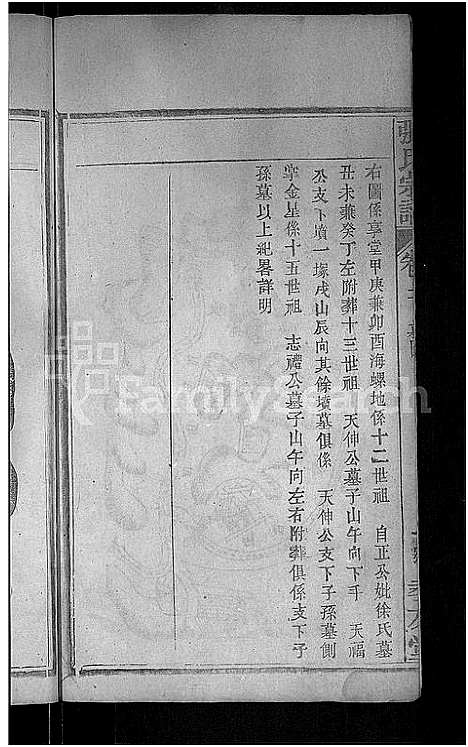 張氏宗譜
右圖係享堂甲庚兼卯酉海螺地係十二世祖 自正公妣徐氏墓
丑未兼癸丁左附葬十三世祖 天伸公墓子山午向下手 天福
公支下墳一塚戌山辰向其餘墳墓俱係 天伸公支下子孫墓側
掌金星係十五世祖 志禮公墓子山午向左右附葬俱係支下子
孫墓以上紀畧詳明
FamilySearch